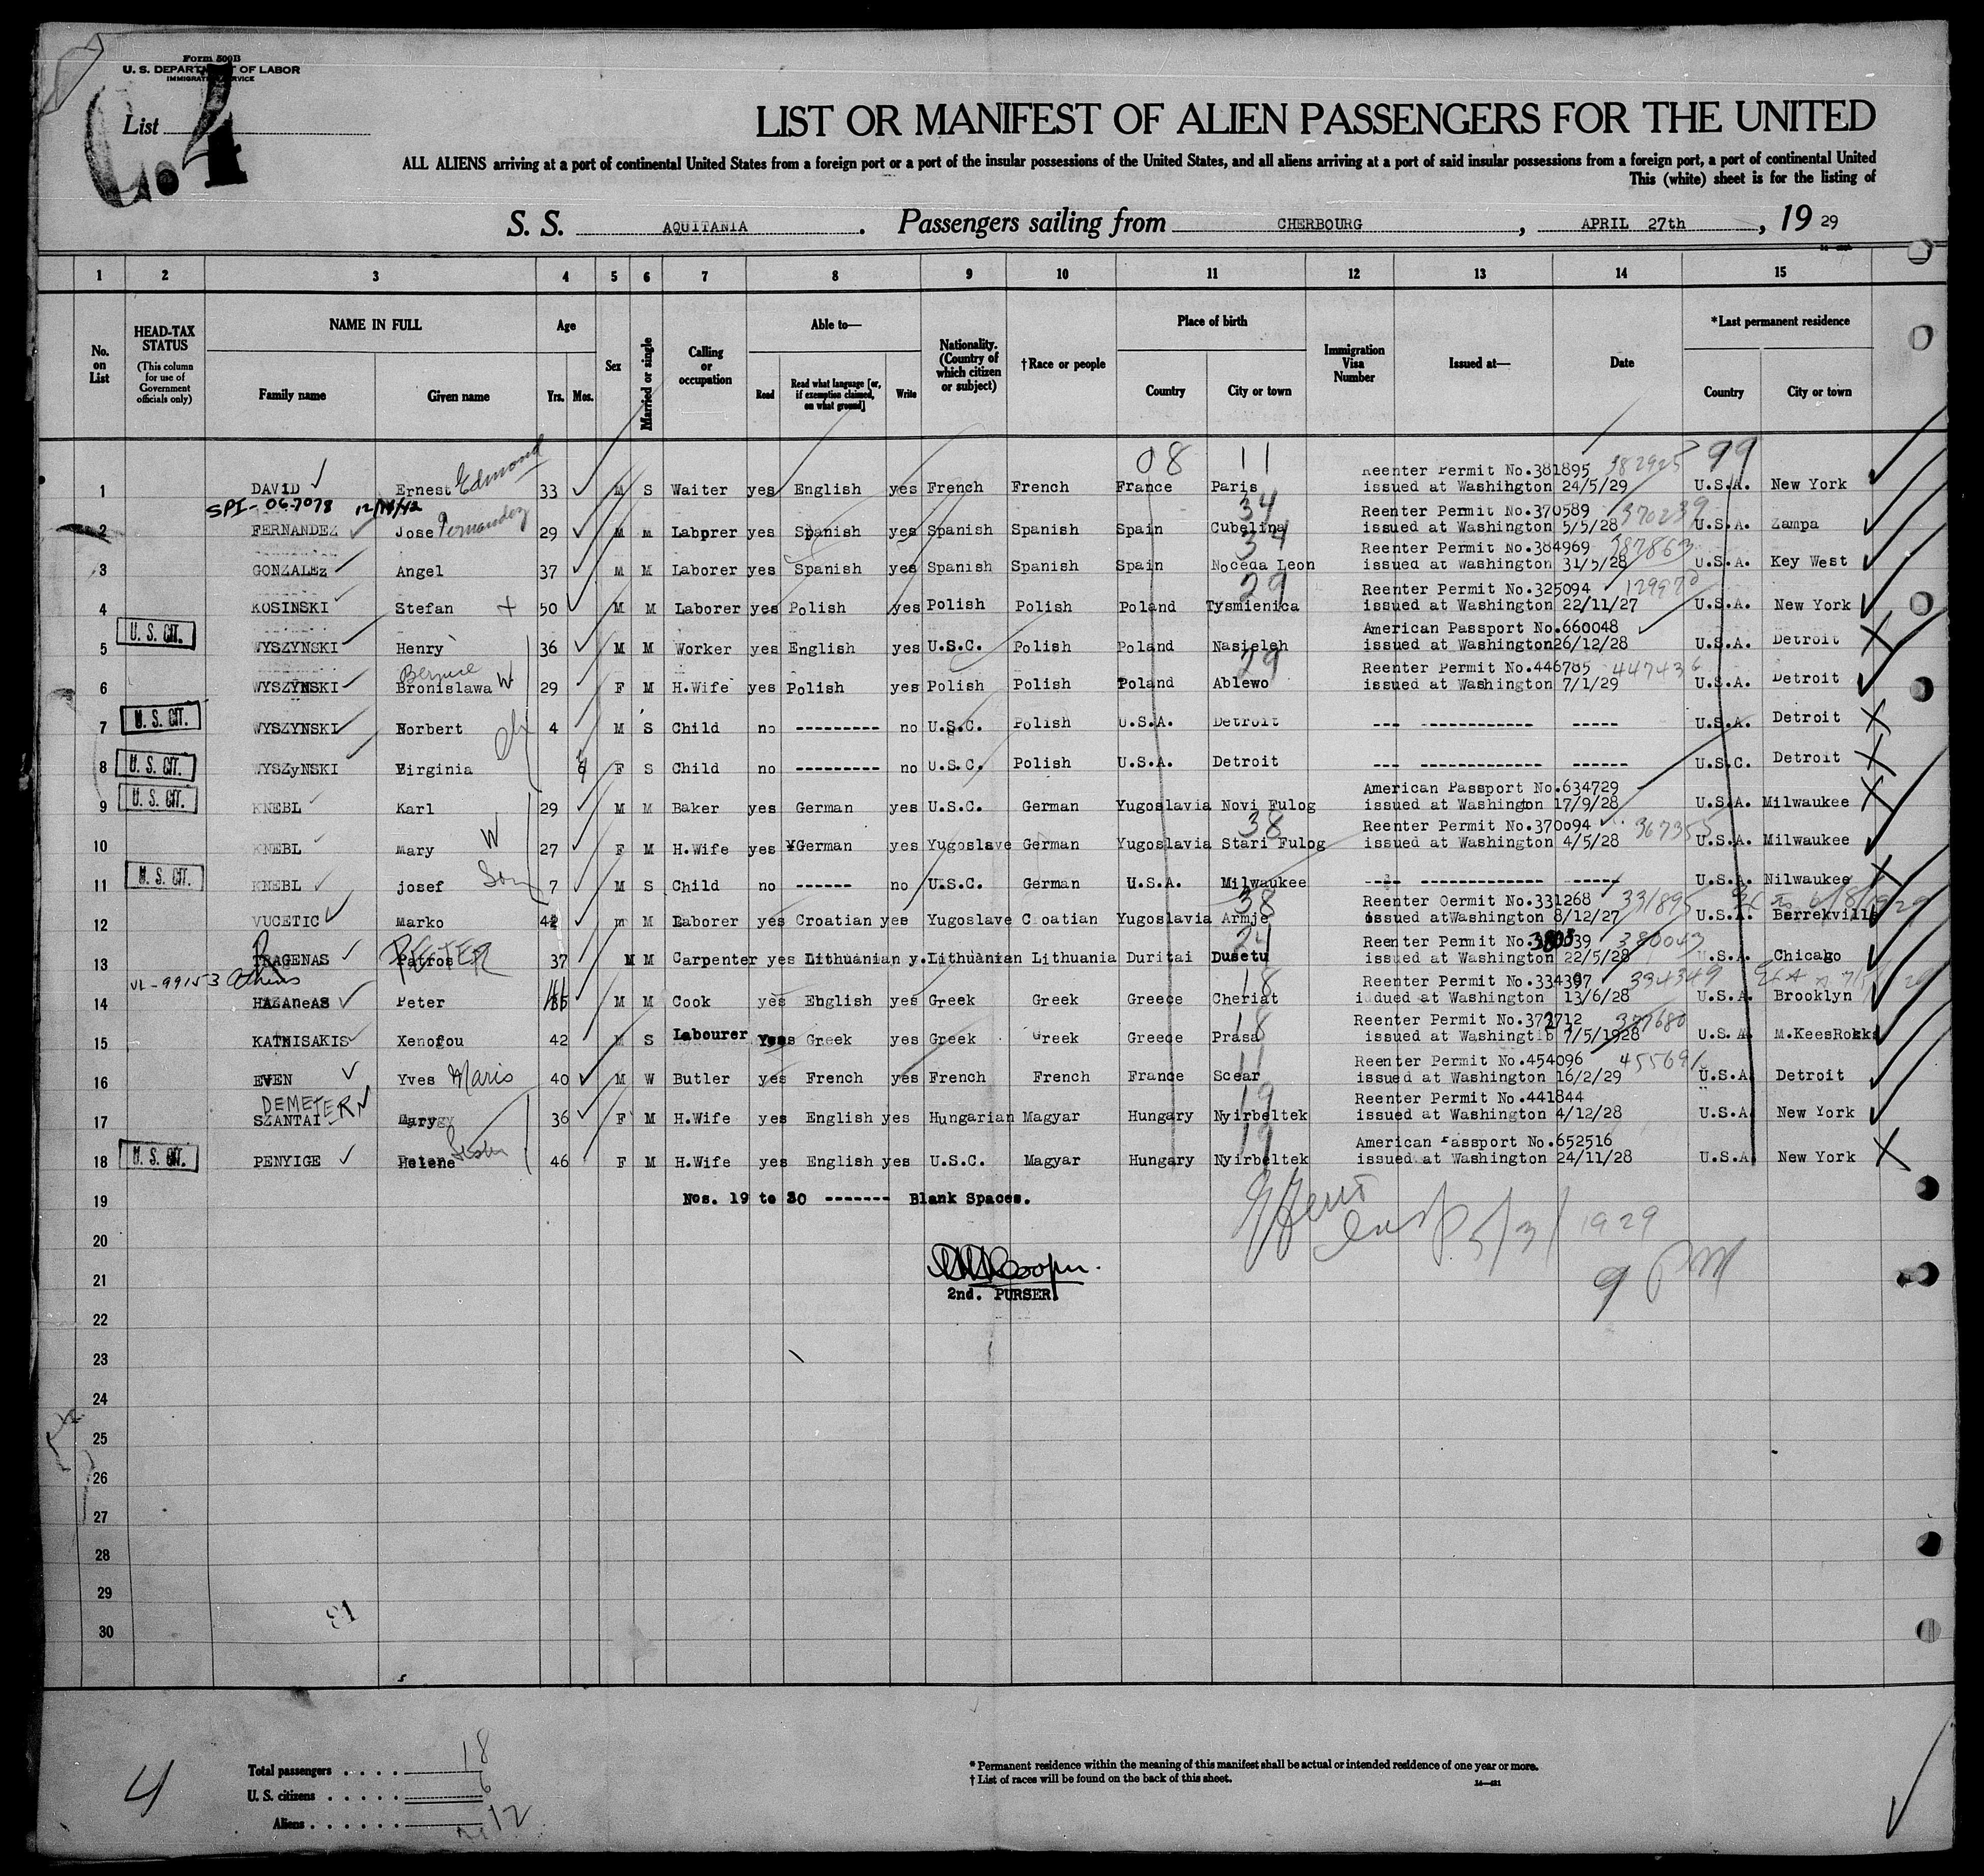 Form 500B
U. S. DEPARTMENT OF LABOR
IMMIGRATION SERVICE
List
4
LIST OR MANIFEST OF ALIEN PASSENGERS FOR THE UNITED
ALL ALIENS arriving at a port of continental United States from a foreign port or a port of the insular possessions of the United States, and all aliens arriving at a port of said insular possessions from a foreign port, a port of continental United
This (white) sheet is for the listing of
S. S. AQUITANIA. Passengers sailing from CHERBOURG, APRIL 27th, 19 29
1 2 3 4 5 6 7 8 9 10 11 12 13 14 15
No. on List
HEAD-TAX STATUS
(This column for use of Government officials only)
NAME IN FULL
Family name Given name
Age
Yrs. Mos.
Sex
Married or single
Calling or occupation
Able to—
Read Read what language [or, if exemption claimed, on what ground] Write
Nationality. (Country of which citizen or subject)
†Race or people
Place of birth
Country City or town
Immigration Visa Number
Issued at—
Date
*Last permanent residence
Country City or town
08 11 382925 99
Reenter Permit No.381895
1 DAVID Ernest Edmond 33 M S Waiter yes English yes French French France Paris issued at Washington 24/5/29 U.S.A. New York
SPI-06-7078 12/14/42
34 Reenter Permit No.370589 370239
2 FERNANDEZ Jose Fernandez 29 M M Laborer yes Spanish yes Spanish Spanish Spain Cubelina issued at Washington 5/5/28 U.S.A. Zampa
34 Reenter Permit No.384969 387863
3 GONZALEz Angel 37 M M Laborer yes Spanish yes Spanish Spanish Spain Noceda Leon issued at Washington 31/5/28 U.S.A. Key West
29 Reenter Permit No.325094
4 KOSINSKI Stefan 50 M M Laborer yes Polish yes Polish Polish Poland Tysmienica issued at Washington 22/11/27 U.S.A. New York
U. S. CIT. American Passport No.660048
5 WYSZYNSKI Henry 36 M M Worker yes English yes U.S.C. Polish Poland Nasieleh issued at Washington 26/12/28 U.S.A. Detroit
Bernice 29 Reenter Permit No.446785 447436
6 WYSZYNSKI Bronislawa W 29 F M H.Wife yes Polish yes Polish Polish Poland Ablewo issued at Washington 7/1/29 U.S.A. Detroit
U. S. CIT.
7 WYSZYNSKI Norbert 4 M S Child no --------- no U.S.C. Polish U.S.A. Detroit --- ------------- ----- U.S.A. Detroit
8 U. S. CIT. WYSZyNSKI Virginia F S Child no --------- no U.S.C. Polish U.S.A. Detroit --- ------------- ------ U.S.C. Detroit
U. S. CIT. American Passport No.634729
9 KNEBL Karl 29 M M Baker yes German yes U.S.C. German Yugoslavia Novi Fulog issued at Washington 17/9/28 U.S.A. Milwaukee
38 Reenter Permit No.370094
10 KNEBL Mary W 27 F M H.Wife yes German yes Yugoslave German Yugoslavia Stari Fulog issued at Washington 4/5/28 U.S.A. Milwaukee
11 U. S. CIT. KNEBL josef Son 7 M S Child no ------ no U.S.C. German U.S.A. Milwaukee ---- ------------- ----- U.S.A. Nilwaukee
38 Reenter Oermit No.331268 331895
12 VUCETIC Marko 42 m M Laborer yes Croatian yes Yugoslave Croatian Yugoslavia Armje issued atWashington 8/12/27 U.S.A. Berrekville
24 Reenter Permit No. 380043
13 TRAGENAS Patros PETER 37 M M Carpenter yes Lithuanian y. Lithuanian Lithuania Duritai Dusetu issued at Washington 22/5/28 U.S.A. Chicago
VL-99153 Athens
18 Reenter Permit No.334397 334349
14 HAZAneAS Peter M M Cook yes English yes Greek Greek Greece Cheriat idued at Washington 13/6/28 U.S.A. Brooklyn
18 Reenter Permit No. 377680
15 KATNISAKIS Xenofou 42 M S Labourer Yes Greek yes Greek Greek Greece Prasa issued at Washingt 7/5/1928 U.S.A. M.KeesRokks
11 Reenter Permit No.454096
16 EVEN Yves Maris 40 M W Butler yes French yes French French France Scear issued at Washington 16/2/29 U.S.A Detroit
DEMETER 19 Reenter Permit No.441844
17 SZANTAI Mary 36 F M H.Wife yes English yes Hungarian Magyar Hungary Nyirbeltek issued at Washington 4/12/28 U.S.A New York
19 American Passport No.652516
18 U. S. CIT. PENYIGE Helene Sister 46 F M H.Wife yes English yes U.S.C. Magyar Hungary Nyirbeltek issued at Washington 24/11/28 U.S.A New York
19 Nos. 19 to 30 ------- Blank Spaces.
5/3/1929
9 PM
20
21
2nd. PURSER.
22
23
24
25
26
27
28
29
30
4
Total passengers 18
U. S. citizens 6
Aliens 12
* Permanent residence within the meaning of this manifest shall be actual or intended residence of one year or more.
† List of races will be found on the back of this sheet.
14—421